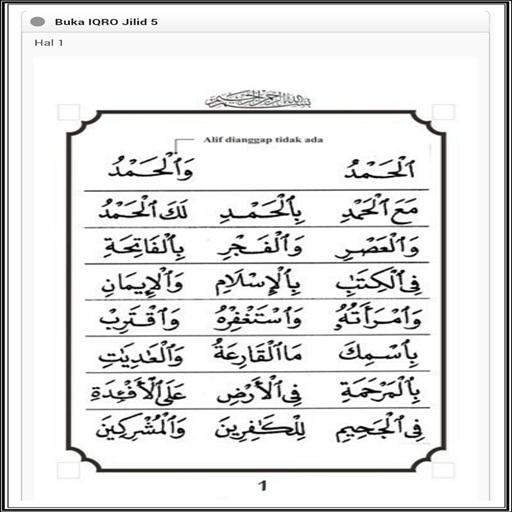 Buka IQRO Jilid 5
Hal 1
بِسْمِ اللهِ الرَّحْمٰنِ الرَّحِيْمِ
Alif dianggap tidak ada
اَلْحَمْدُ وَٱلْحَمْدُ
مَعَ ٱلْحَمْدِ بِٱلْحَمْدِ لَكَ ٱلْحَمْدُ
وَٱلْعَصْرِ وَٱلْفَجْرِ بِٱلْفَاتِحَةِ
فِى ٱلْكِتَٰبِ بِٱلْإِسْلَامِ وَٱلْإِيمَانِ
وَٱمْرَأَتُهُۥ وَٱسْتَغْفِرْهُ وَٱقْتَرِبْ
بِٱسْمِكَ مَا ٱلْقَارِعَةُ وَٱلْعَٰدِيَٰتِ
بِٱلْمَرْحَمَةِ فِى ٱلْأَرْضِ عَلَى ٱلْأَفْئِدَةِ
فِى ٱلْجَحِيمِ لِلْكَٰفِرِينَ وَٱلْمُشْرِكِينَ
1